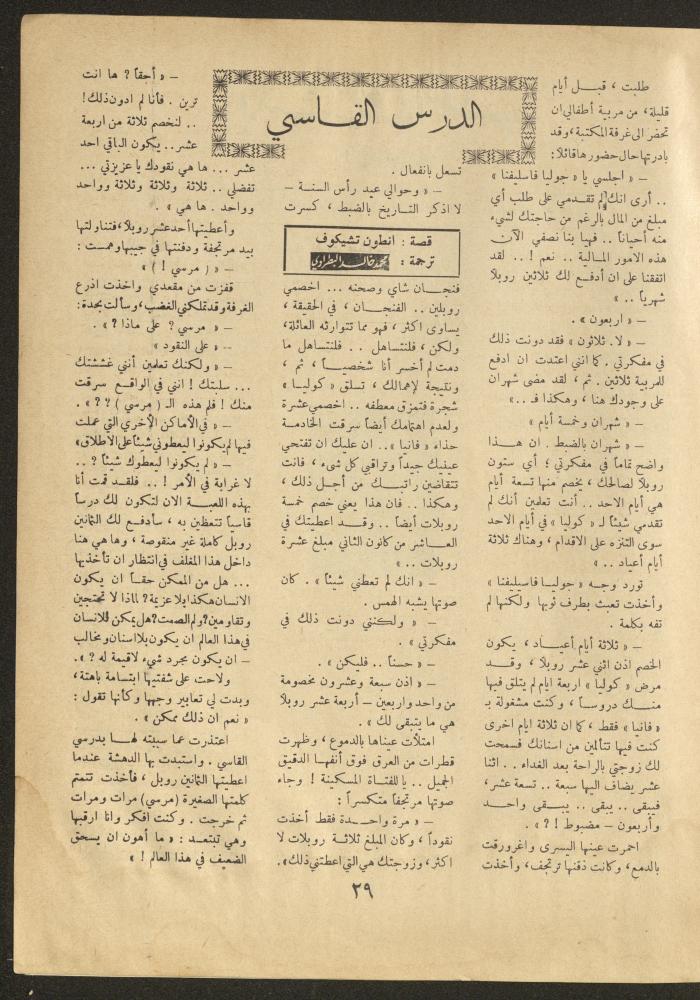 الدرس القاسي
قصة : انطون تشيكوف
ترجمة : محمد خالد البطراوي
طلبت ، قبل أيام
قليلة، من مربية أطفالي ان
تحضر الى غرفة المكتبة، وقد
بادرتها حال حضورها قائلا:
– « اجلسي يا « جوليا فاسليفنا »
.. أرى انك لم تقدمي على طلب أي
مبلغ من المال بالرغم من حاجتك لشيء
منه أحيانا .. فهيا بنا نصفي الآن
هذه الامور المالية .. نعم !.. لقد
اتفقنا على ان أدفع لك ثلاثين روبلا
شهريا .. »
– « اربعون » .
– « لا. ثلاثون » فقد دونت ذلك
في مفكرتي . كما انني اعتدت ان ادفع
للمربية ثلاثين . ثم ، لقد مضى شهران
على وجودك هنا ، وهكذا فـ .. »
– « شهران وخمسة أيام »
– « شهران بالضبط . ان هــذا
واضح تماما في مفكرتي ؛ أي ستون
روبلا لصالحك ، يخصم منها تسعة أيام
هي أيام الاحد .. أنت تعلمين أنك لم
تقدمي شيئا لـ « كوليا » في أيام الاحد
سوى التنزه على الاقدام ، وهناك ثلاثة
أيام أعياد .. »
تورد وجه « جوليا فاسيليفنا »
وأخذت تعبث بطرف ثوبها ولكنها لم
تفه بكلمة .
– « ثلاثة أيام أعياد ، يكون
الخصم اذن اثني عشر روبلا ، وقــد
مرض « كوليا » اربعة ايام لم يتلق فيها
منــك دروسا ، وكنت مشغولة بـ
« فانيا » فقط ، كما ان ثلاثة ايام اخرى
كنت فيها تتألمين من اسنانك فسمحت
لك زوجتي بالراحة بعد الغداء .. اثنا
عشر يضاف اليها سبعة .. تسعة عشر،
فيبقى .. يبقى .. يبــقى واحــد
وأربعون – مضبوط ! ? » .
احمرت عينها اليسرى واغرورقت
بالدمع، وكانت ذقنها ترتجف، وأخذت
تسعل بانفعال .
– « وحوالي عيد رأس السنة –
لا اذكر التــاريخ بالضبط ، كسرت
فنجــان شاي وصحنه ... اخصمي
روبلين .. الفنجــان ، في الحقيقة ،
يساوي اكثر ، فهو مما تتوارثه العائلة،
ولكن ، فلنتساهل .. فلنتساهل ما
دمت لم أخسر أنا شخصيــا ، ثم ،
ونتيجة لإهمالك ، تسلق « كوليــا »
شجرة فتمزق معطفه .. اخصمي عشرة
ولعدم اهتمامك أيضا سرقت الخادمــة
حذاء « فانيا » .. ان عليك ان تفتحي
عينيك جيدا وتراقبي كل شيء ، فانت
تتقاضين راتبــك من أجــل ذلك ،
وهكذا .. فان هذا يعني خصم خمسة
روبلات أيضا .. وقــد اعطيتك في
العــاشر من كانون الثاني مبلغ عشرة
روبلات .. »
– « انك لم تعطني شيئا » . كان
صوتها يشبه الهمس .
– « ولكنني دونت ذلك في
مفكرتي » .
– « حسنا .. فليكن » .
– « اذن سبعة وعشرون مخصومة
من واحد واربعين – أربعة عشر روبلا
هي ما يتبقى لك » .
امتلأت عيناها بالدموع ، وظهرت
قطرات من العرق فوق أنفها الدقيق
الجميل .. يا للفتاة المسكينة ! وجاء
صوتها مرتجفا متكسرا :
– « مرة واحــدة فقط أخذت
نقودا ، وكان المبلغ ثلاثــة روبلات لا
اكثر، وزوجتك هي التي اعطتني ذلك».
– « أحقا ? ها انت
ترين . فأنا لم ادون ذلك!
.. لنخصم ثلاثة من اربعة
عشر .. يكون الباقي احد
عشر ... ها هي نقودك يا عزيزتي ...
تفضلي .. ثلاثة وثلاثة وثلاثة وواحد
وواحد . ها هي » .
وأعطيتها أحد عشر روبلا، فتناولتها
بيد مرتجفة ودفنتها في جيبها وهمست :
– « ( مرسي ! ) »
قفزت من مقعدي واخذت اذرع
الغرفة وقد تملكني الغضب، وسألت بحدة:
– « مرسي ? على ماذا ? » .
– « على النقود »
– « ولكنك تعلمين أنني غششتك
... سلبتك ! انني في الواقــع سرقت
منك ! فلم هذه الـ ( مرسي ) ? ? » .
– « في الأماكن الأخرى التي عملت
فيها لم يكونوا ليعطوني شيئا على الاطلاق»
– « لم يكونوا ليعطوك شيئا ? ..
لا غرابة في الأمر ! .. فلقــد قمت أنا
بهذه اللعبــة الان لتكون لك درسا
قاسيا تتعظين به ، سأدفــع لك الثمانين
روبل كاملة غير منقوصة ، وها هي هنا
داخل هذا المغلف في انتظار ان تأخذيها
... هل من الممكن حقــا ان يكون
الانسان هكذا بلا عزيمة? لماذا لا تحتجين
وتقاومين? ولم الصمت? هل يمكن للانسان
في هذا العالم ان يكون بلا اسنان ومخالب
– ان يكون مجرد شيء لا قيمة له ? ».
ولاحت على شفتيها ابتسامة باهتة،
وبدت لي تعابير وجهها وكأنها تقول :
« نعم ان ذلك ممكن » .
اعتذرت عما سببته لهــا بدرسي
القاسي . واستبدت بها الدهشة عندما
اعطيتها الثمانين روبل ، فأخذت تتمتم
كلمتها الصغيرة (مرسي) مرات ومرات
ثم خرجت . وكنت افكر وانا ارقبها
وهي تبتعــد : « ما أهون ان يسحق
الضعيف في هذا العالم ! »
٢٩